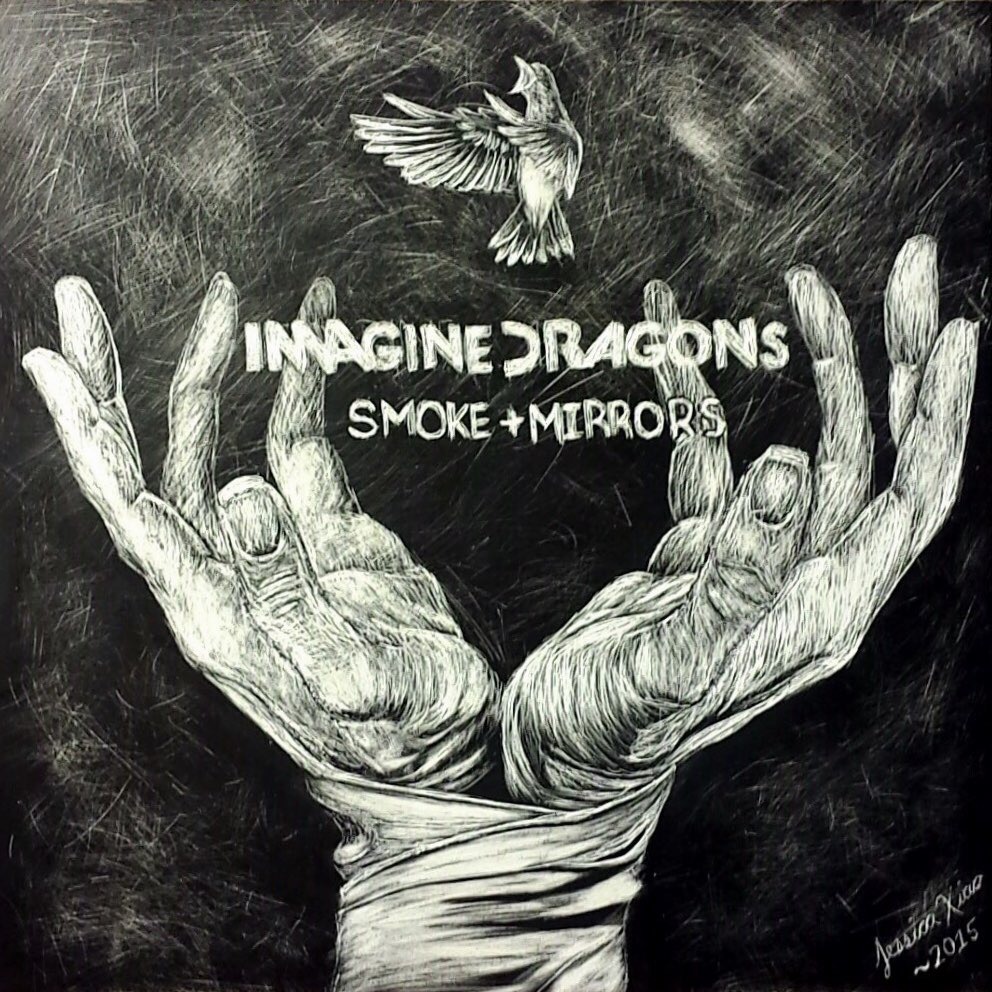 IMAGINE DRAGONS
SMOKE + MIRRORS
Jessica Xiao
~2015